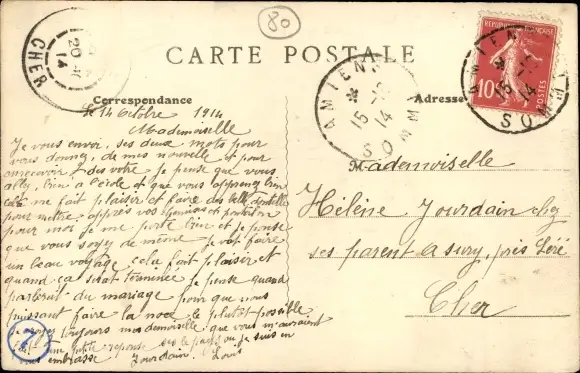 80
CARTE POSTALE
Correspondance
Adresse
RÉPUBLIQUE FRANÇAISE
10
POSTES
AMIENS
15-10
14
SOMME
AMIENS
15-10
14
SOMME
20
14
CHER
le 14 Octobre 1914
Mademoiselle
Je vous envoi, ses deux mots pour
vous donnez, de mes nouvelle et pour
recevoir des votre je pense que vous
allez, bien a l'école et que vous apprenez bien
cela me fait plaisir et faire des belle dentelle
pour mettre, apprès vos et
pour moi je me porte bien et je pense
que vous soyez de même je vait faire
un beau voyage cela fait plaisir et
quand ça serat terminée je pense quand
parlerait du mariage pour que nous
puissant faire la noce le plutôt possible
toujours mademoiselle que vous
une petite reponse je suis en
vous embrasse Jourdain Louis
Mademoiselle
Hélène Jourdain chez
ses parent a sury, près Léré
Cher
7